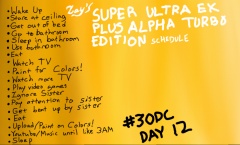 • Wake Up
• Stare at ceiling
• Get out of bed
• Go to bathroom
• Sleep in bathroom
• Use bathroom
• Eat
• Watch TV
• Paint for Colors!
• Watch more TV
• Play video games
• Ignore Sister
• Pay attention to sister
• Get beat up by sister
• Eat
• Upload/Paint on Colors!
• Youtube/Music until like 3AM
• Sleep
Zay's
SUPER ULTRA EX
PLUS ALPHA TURBO
EDITION SCHEDULE
#30DC
DAY 12